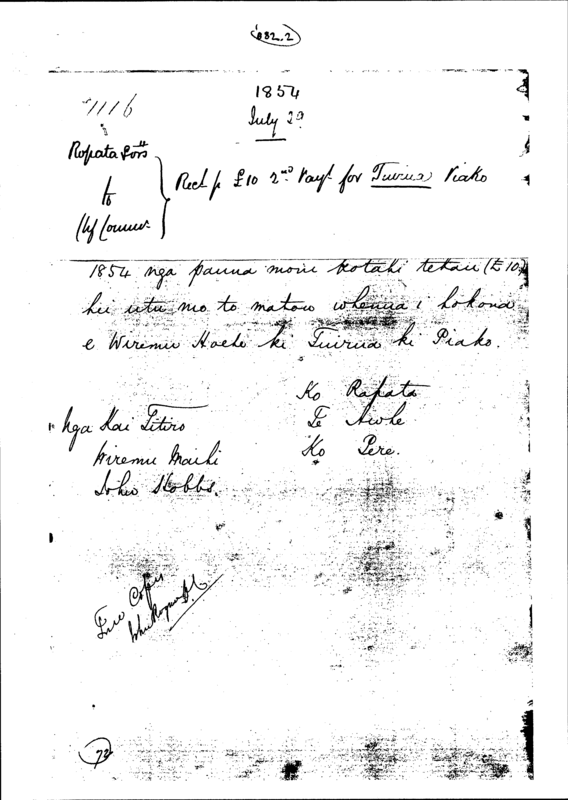 882.2
1116
1854
July 29
Ropata & ors
to
Rect for £10 2nd Payt for Tuirua Piako
1854 nga pauna moni kotahi tekau (£10.)
hei utu mo to matou whenua i hokona
e Wiremu Hoete ki Tuirua ki Piako.
Ko Rapata
Te Awhe
Ko Pere.
Nga Kai Titiro
Wiremu Maihi
John Hobbs.
True Copy
72